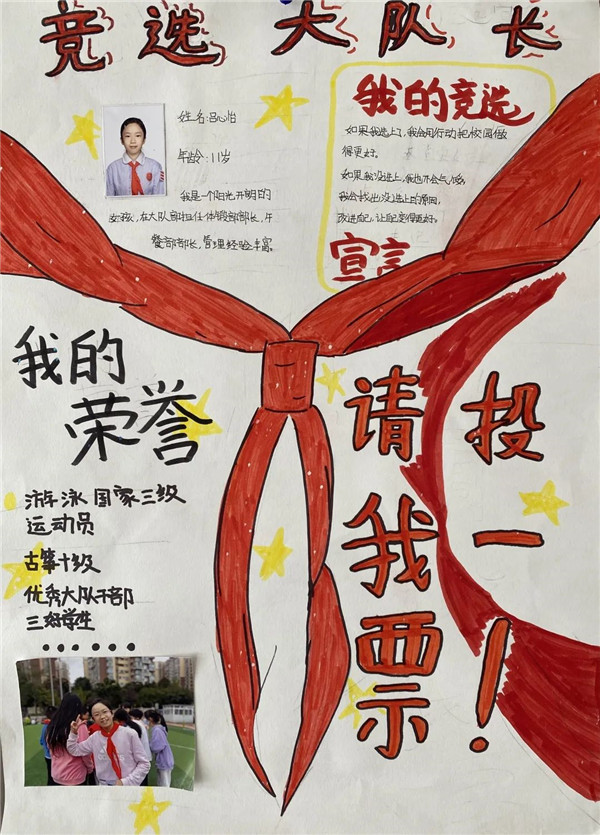 竞选大队长
姓名:吕心怡
年龄:11岁
我是一个阳光,开朗的
女孩,在大队部担任体锻部部长,午
餐部部长,管理经验丰富。
我的竞选
如果我选上了,我会用行动把校园做
得更好。
如果我没选上,我也不会气馁,
我会找出没选上的原因,
改进自己,让自己变得更好。
宣言
我的
荣誉
游泳国家三级
运动员
古筝十级
优秀大队干部
三好学生
......
请投
我一
票!